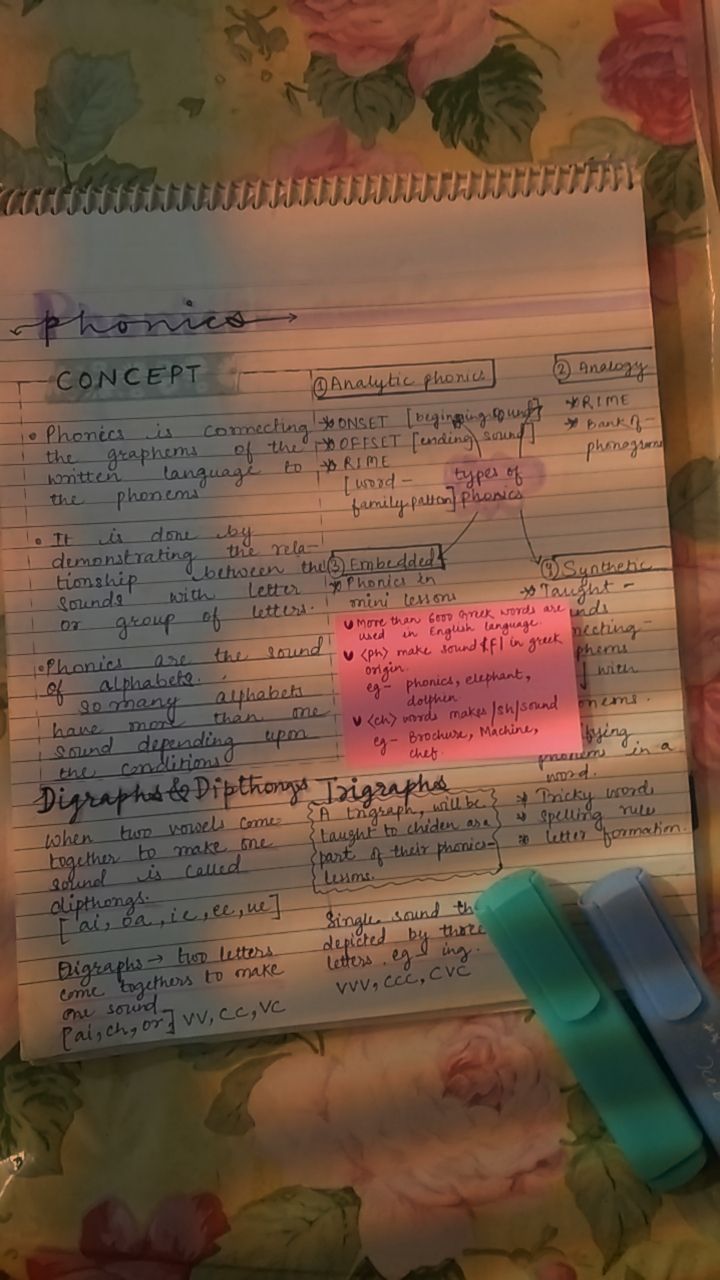 Phonics
phonics
CONCEPT
• Phonics is connecting
the graphems of the
written language to
the phonems
• It is done by
demonstrating the rela-
tionship between the
sounds with letter
or group of letters.
• Phonics are the sound
of alphabets.
so many alphabets
have more than one
sound depending upon
the conditions
① Analytic phonics
ONSET [beginning sound]
OFFSET [ending sound]
RIME
[word-
family pattern]
types of
phonics
② Analogy
RIME
Bank of-
phonograms
③ Embedded
Phonics in
mini lessons
④ Synthetic
Taught -
nds
necting-
phems
with
onems.
fying
phonem in a
word.
Tricky word
spelling rule
letter formation.
More than 6000 Greek words are
used in English language.
<ph> make sound /f/ in greek
origin.
eg- phonics, elephant,
dolphin
<ch> words makes /sh/sound
eg- Brochure, Machine,
chef.
Digraphs & Dipthongs
When two vowels come
together to make one
sound is called
dipthongs.
[ai, oa, ie, ee, ue]
Digraphs → two letters
come togethers to make
one sound
[ai, ch, or] VV, CC, VC
Trigraphs
A trigraph, will be
taught to chiden are
part of their phonics-
lessms.
Single sound th
depicted by three
letters. eg- ing.
VVV, CCC, CVC